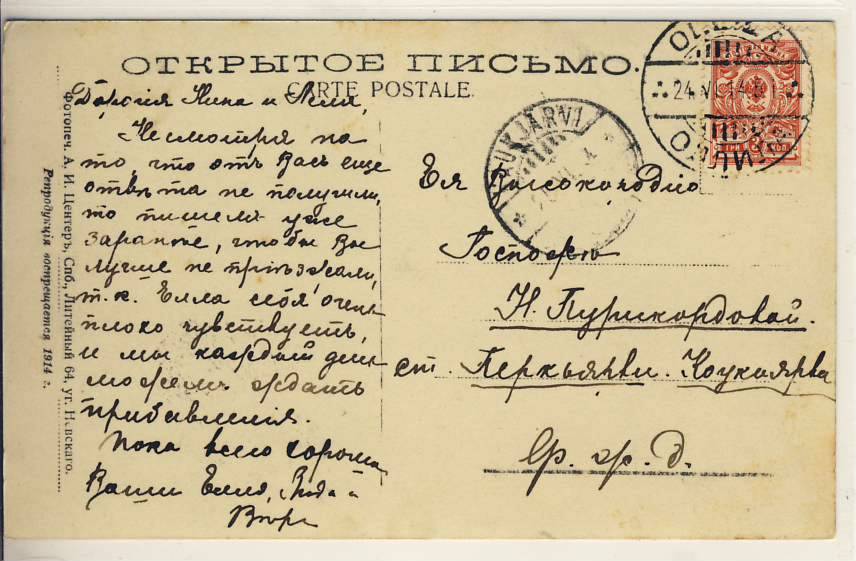 ОТКРЫТОЕ ПИСЬМО.
CARTE POSTALE.
Дорогія Нина и Леля,
Несмотря на
то, что отъ Васъ еще
отвѣта не получили,
то пишемъ уже
заранѣе, чтобы Вы
лучше не пріѣзжали,
т. к. Елла себя очень
плохо чувствуетъ,
и мы каждый день
можемъ ждать
прибавленія.
Пока всего хорошаго
Ваши Елла, и
Ея Высокородію
Госпожѣ
Н. Пурикордовой.
ст. Перкьярви. Коукіярви
Ф. ж. д.
Фотопеч. А. И. Центеръ, Спб., Литейный 64, уг. Невскаго.
Репродукція воспрещается 1914 г.
24.VI.14